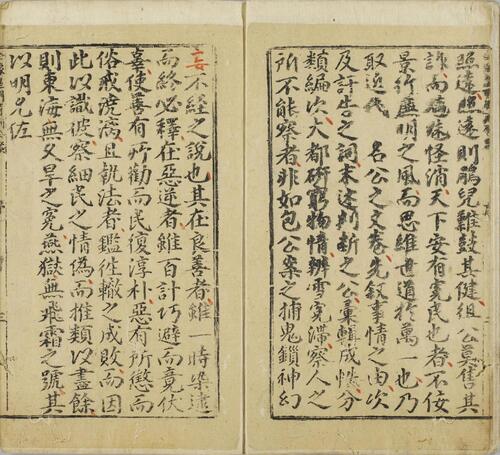 照遠則鵰兒難鼓其健組公莫售其
詐而怪消天下安有寃民也者不佞
景行廉明之風而思維世道於萬一也乃
取近代 名公之文卷先敘事情之由次
及訐告之詞末述判斷之公彙輯成帙分
類編次大都研窮物情辨雪寃滯察人之
所不能察者非如包公案之捕鬼鎖神幻
妄不經之說也其在良善者雖一時染逮
而終必釋在惡逆者雖百計巧避而竟伏
辜使善有所勸而民復淳朴惡有所懲而
俗戒澆漓且執法者鑑徃轍之成敗而因
此以識彼察細民之情偽而推類以盡餘
則東海無久旱之寃燕獄無飛霜之號其
以明允佐